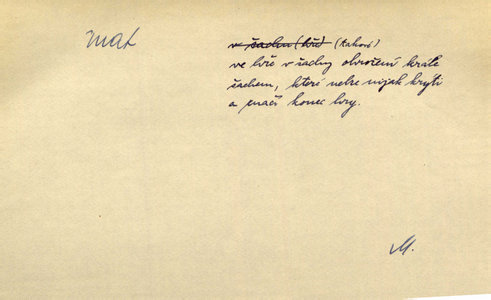 mat
v šachu (hře) (takové)
ve hře v šachy ohrožení krále
šachem, které nelze nijak krýti
a značí konec hry.
M.